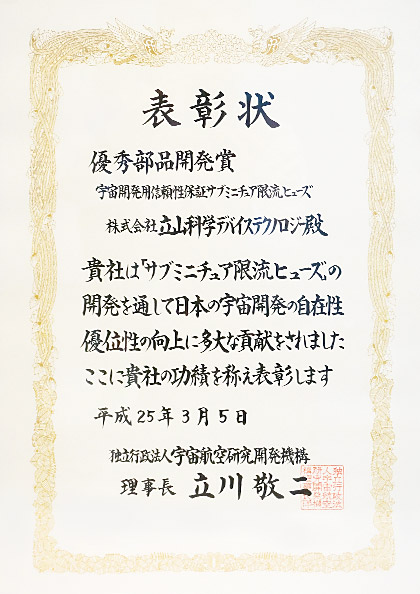 表彰状
優秀部品開発賞
宇宙開発用信頼性保証サブミニチュア限流ヒューズ
株式会社立山科学デバイステクノロジー殿
貴社は「サブミニチュア限流ヒューズ」の
開発を通して日本の宇宙開発の自在性
優位性の向上に多大な貢献をされました
ここに貴社の功績を称え表彰します
平成25年3月5日
独立行政法人宇宙航空研究開発機構
理事長 立川敬二